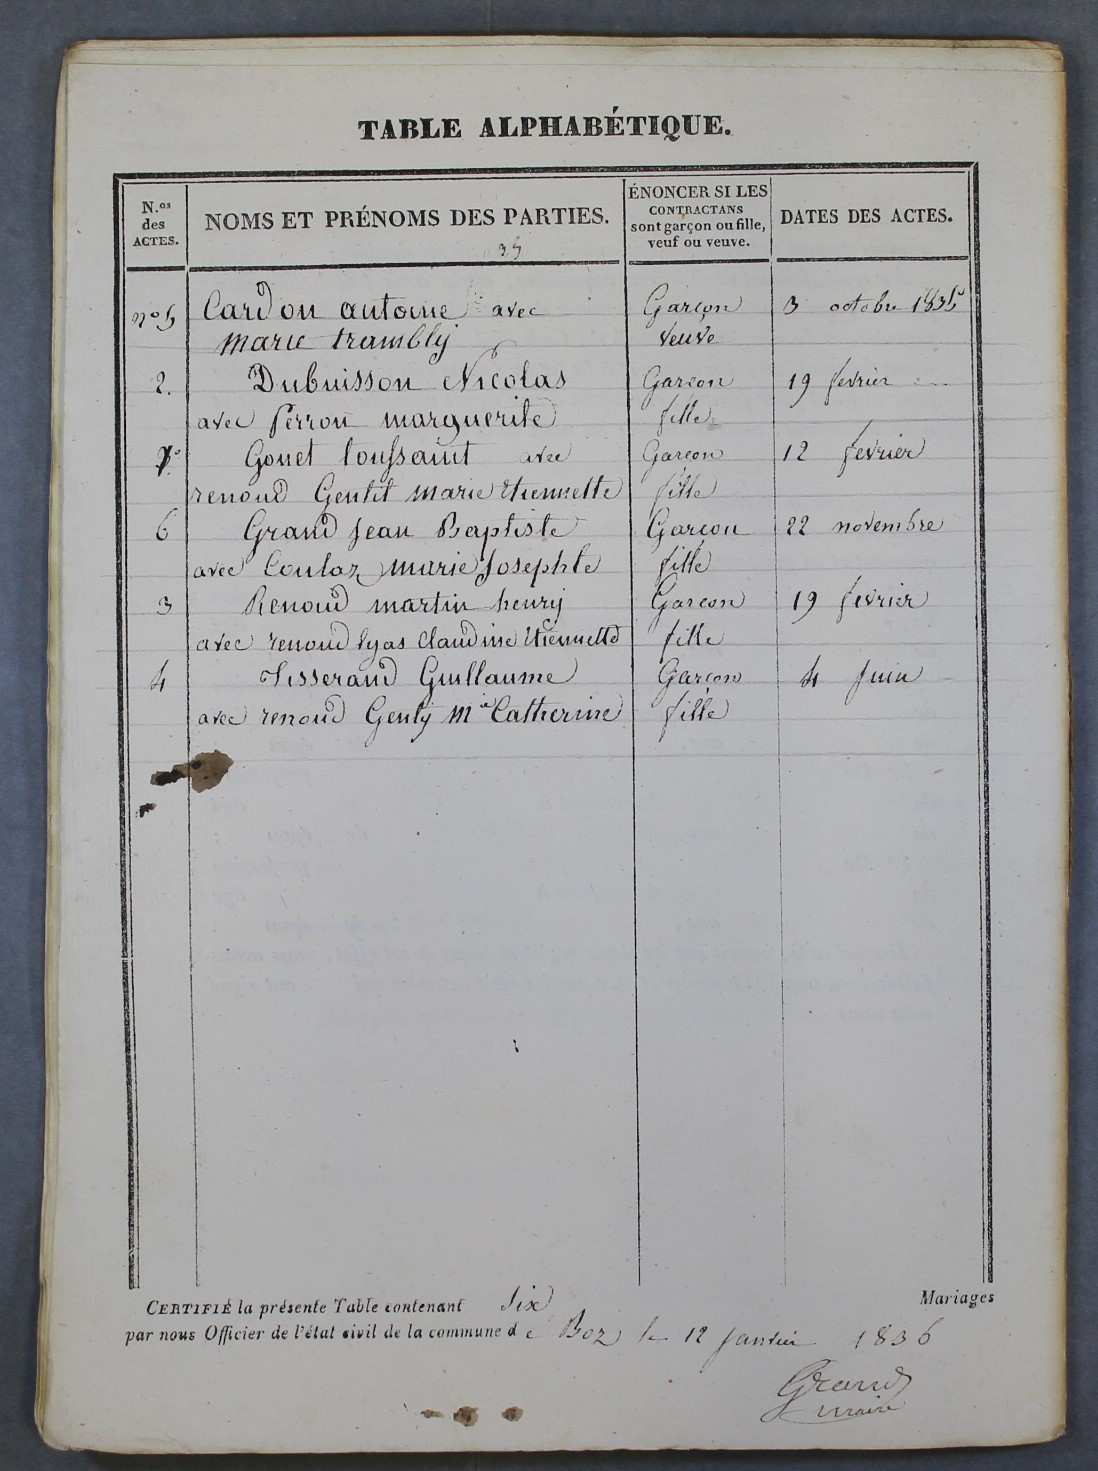 TABLE ALPHABÉTIQUE.
N.os des ACTES.
NOMS ET PRÉNOMS DES PARTIES.
ÉNONCER SI LES CONTRACTANS sont garçon ou fille, veuf ou veuve.
DATES DES ACTES.
35
no 5 Cardon antoine avec Garçon 3 octobre 1835
marie trambly veuve
2. Dubuisson Nicolas Garcon 19 fevrier
avec Perron marguerite fille
1o Gouet toussaint avec Garcon 12 fevrier
renoud Gentit marie Etiennette fille
6 Grand Jean Baptiste Garcon 22 novembre
avec Coulaz marie Josephte fille
3 Renoud martin henry Garcon 19 fevrier
avec renoud lyas Claudine Etiennette fille
4 Tisserand Guillaume Garçon 4 Juin
avec renoud Genty Mie Catherine fille
CERTIFIÉ la présente Table contenant Six Mariages
par nous Officier de l'état civil de la commune de Boz le 12 Janvier 1836
Grand
maire